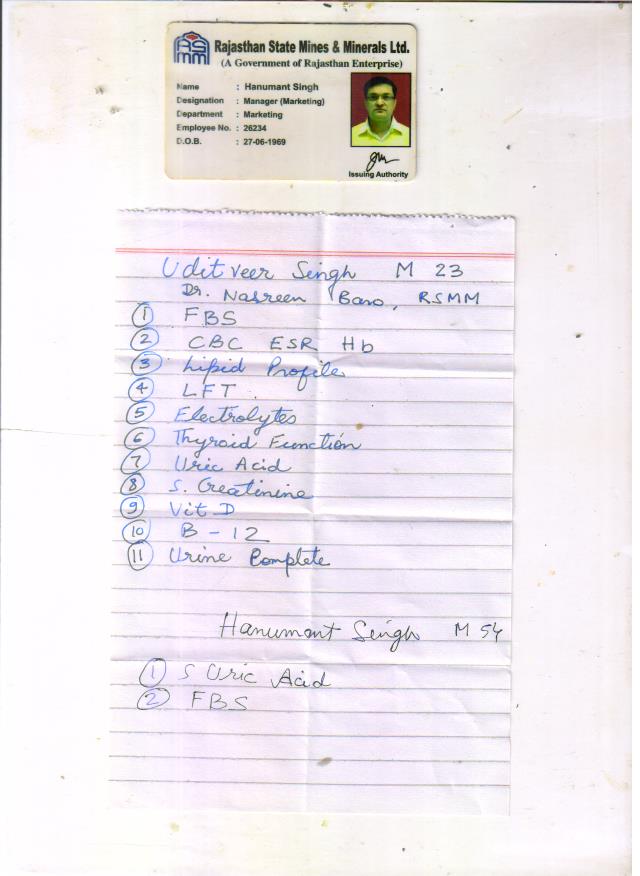 RSMM
Rajasthan State Mines & Minerals Ltd.
(A Government of Rajasthan Enterprise)
Name : Hanumant Singh
Designation : Manager (Marketing)
Department : Marketing
Employee No. : 26234
D.O.B. : 27-06-1969
Issuing Authority
Udit Veer Singh M 23
Dr. Nasreen Bano, RSMM
1 FBS
2 CBC ESR Hb
3 Lipid Profile
4 LFT
5 Electrolytes
6 Thyroid Function
7 Uric Acid
8 S. Creatinine
9 Vit D
10 B - 12
11 Urine Complete
Hanumant Singh M 54
1 S Uric Acid
2 FBS